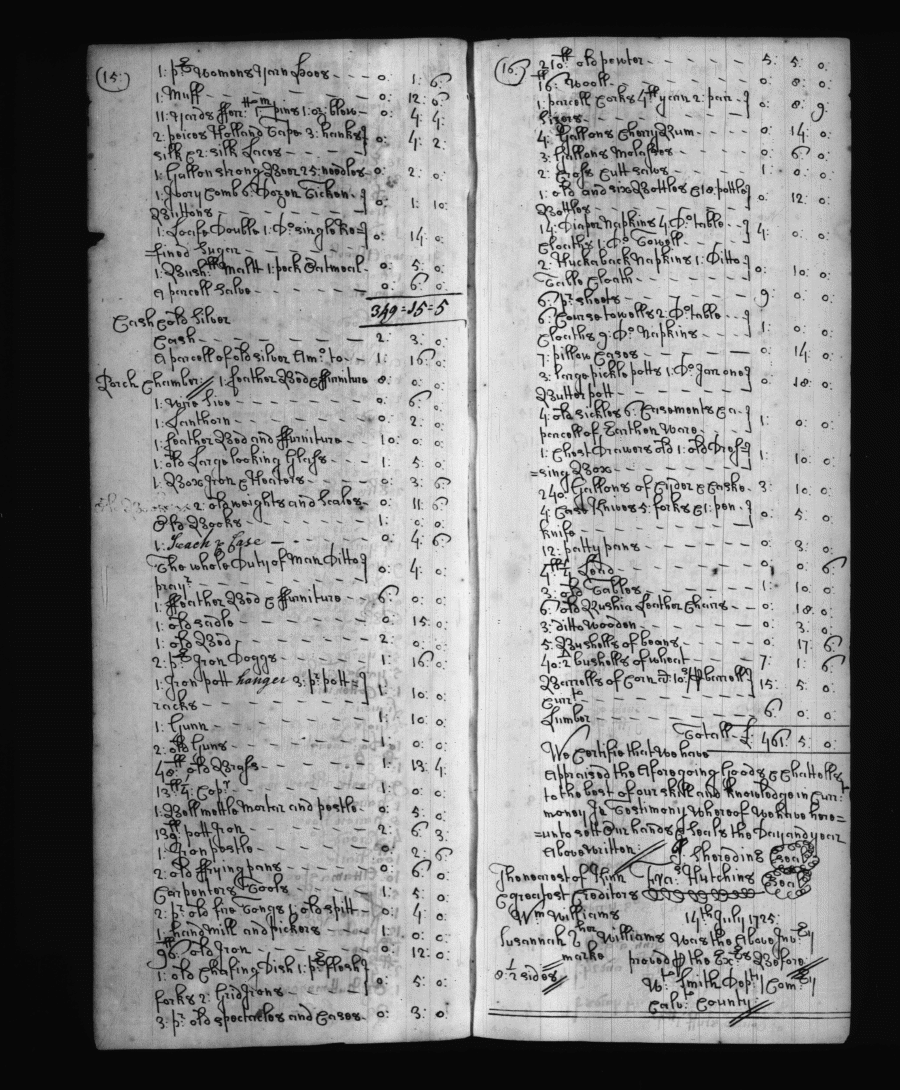 (15:)
1: pr Womens Yarn Hoes - - - 0: 1: 6:
1: Muff - - - 0: 12: 0:
Hem
11: Yards fferr: 1: pins 1: oz: blew - - 0: 4: 4:
2: peices Holland Tape 3: hanks
silk & 2: silk Laces - - - 0: 4: 2:
1: Gallon strong Beer 25: needles - 0: 2: 0:
1: Ivory Comb 6: Dozen Ticken
Buttons - - - 0: 1: 10:
1: Loafe Double 1: Do single Re=
=fined Sugar - - - 0: 14: 0:
1: Bush: Malt 1: peck Oatmeal - 0: 5: 0:
a parcell Salve - - - 0: 6: 0:
349=15=5
Cash & old Silver
Cash - - - 2: 3: 0:
A parcell of old silver Amo: to - - 1: 16: 0:
Porch Chamber 1: feather Bed & ffurniture 8: 0: 0:
1: wire sive - - - 0: 6: 0:
1: Lanthorn - - - 0: 2: 0:
1: feather Bed and ffurniture - - 10: 0: 0:
1: old Large looking Glass - - - 1: 5: 0:
1: Box Iron & Heaters - - - 0: 3: 6:
2: old weights and Scales - - 0: 11: 6:
Old Books - - - 1: 0: 0:
1: Leach & Case - - 0: 4: 6:
The whole Duty of Man Ditto
prayr - - - 0: 4: 0:
1: ffeather Bed & ffurniture - - 6: 0: 0:
1: old sadle - - - 0: 15: 0:
1: old Bed - - - 2: 0: 0:
2: pr Iron Doggs - - - 1: 16: 0:
1: Iron pott hanger 3: pr: pott=
racks - - - 1: 10: 0:
1: Gunn - - - 1: 10: 0:
2: old Guns - - - 1: 0: 0:
40 old Brass - - - 1: 13: 4:
13 1/4: Copr - - - 1: 0: 0:
1: Bell mettle Mortar and pestle - - 0: 5: 0:
139 pott Iron - - - 2: 6: 3:
1: Iron pestle - - - 0: 2: 6:
2: old ffrying pans - - - 0: 6: 0:
Carpenters Tools - - - 1: 5: 0:
2: pr: old fire Tongs 1: old spitt - - 0: 4: 0:
1: hand Mill and pickers - - 1: 0: 0:
96: old Iron - - - 0: 12: 0:
1: old Chafing Dish 1: pr fflesh
forks 2: Gridirons - - - 0: 5: 0:
3: pr: old spectacles and Cases - - 0: 3: 0:
(16:)
210 old pewter - - - 5: 5: 0:
16: Wooll - - - 0: 8: 0:
1: parcell Corks 4 yarn 2: pair
Sizers - - - 0: 8: 9:
4: Gallons Cherry Rum - - 0: 14: 0:
3: Gallons Molasses - - - 0: 6: 0:
2: Cross Cutt saws - - - 1: 0: 0:
1: old and six Bottles & 18: pottle
Bottles - - - 0: 12: 0:
14: Diaper Napkins 4: Do: table
Cloaths 1: Do Towell - - - 4: 0: 0:
2: Huckaback Napkins 1: Ditto
Table Cloath - - - 0: 10: 0:
6: pr: sheets - - - 9: 0: 0:
6: Course towells 2: Do: table
Cloaths 9: Do: Napkins - - - 1: 0: 0:
7: pillow Cases - - - 0: 14: 0:
3: large pickle potts 1: Do: Jar one
Butter pott - - - 0: 18: 0:
4: old sickles 6: Casements & a
parcell of Earthen Ware - - - 1: 0: 0:
1: Chest Drawers old 1: old Dress=
=sing Box - - - 1: 10: 0:
240: Gallons of Cyder & Caske - 3: 10: 0:
4: Case Knives 5: forks & 1: pen
knife - - - 0: 5: 0:
12: patty pans - - - 0: 3: 0:
4 Lead - - - 0: 0: 6:
3: old Tables - - - 1: 10: 0:
6: old Rushia Leather Chairs - - 0: 18: 0:
3: ditto wooden - - - 0: 3: 0:
5: Bushells of beans - - - 0: 17: 6:
40: 1/2 bushells of wheat - - 7: 1: 6:
Barrells of Corn at 10s p barrell
Currt - - - 15: 5: 0:
Lumber - - - 6: 0: 0:
Totall £ 461: 5: 0:
We Certifie that We have
appraised the Aforegoing Goods & Chattells
to the best of our skill and knowledge in Curr:
money In Testimony Whereof We have here=
=unto sett Our hands & Seals the Day and year
Above written: J: Shereding Seal
The nearest of Kinn Fra: Hutchins Seal
& greatest Creditors
Wm Williams 14th July 1725:
her
Susannah Williams Was the Above Invry
marke proved p the Exrs Before
8 1/2 sides
W: Smith Depty Comry
Calvt County